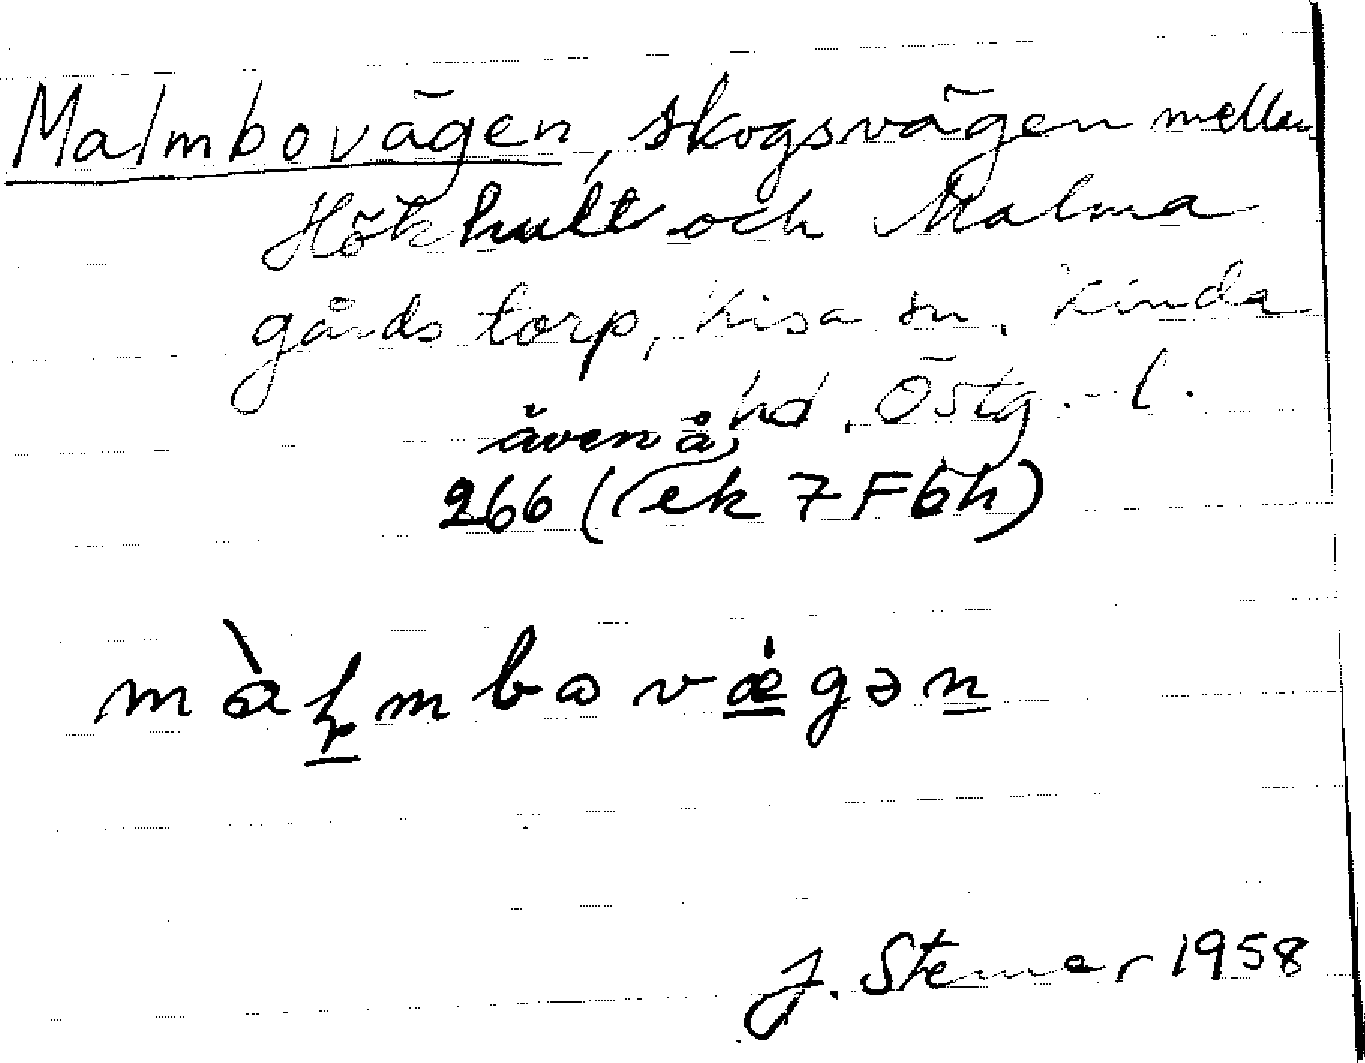 Malmbovägen, skogsvägen mellan
Hökhult och Malma
gårds torp, Kisa sn, Kinda
hd, Östg.-l.
även å
266 (ek 7F6h)
màⱡmbavǽgən
J. Stenner 1958